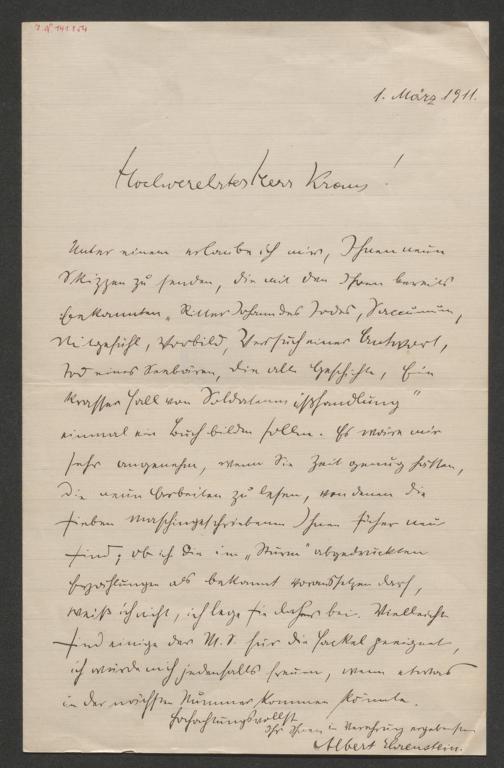 J.N. 141.854
1. März 1911.
Hochverehrter Herr Kraus!
Unter einem erlaube ich mir, Ihnen neun
Skizzen zu senden, die mit den Ihnen bereits
bekannten „Ritter Johann des Todes, Saccumum,
Mitgefühl, Vorbild, Versuch einer Antwort,
Tod eines Seebären, die alte Geschichte, Ein
krasser Fall von Soldatenmißhandlung"
einmal ein Buch bilden sollen. Es wäre mir
sehr angenehm, wenn Sie Zeit genug hätten,
die neun Arbeiten zu lesen, von denen die
sieben maschingeschriebenen Ihnen sicher neu
sind; ob ich die im „Sturm" abgedruckten
Erzählungen als bekannt voraussetzen darf,
weiß ich nicht, ich lege sie daher bei. Vielleicht
sind einige der M.S. für die Fackel geeignet,
ich würde mich jedenfalls freuen, wenn etwas
in der nächsten Nummer kommen könnte.
Hochachtungsvollst
Ihr Ihnen in Verehrung ergebenster
Albert Ehrenstein.